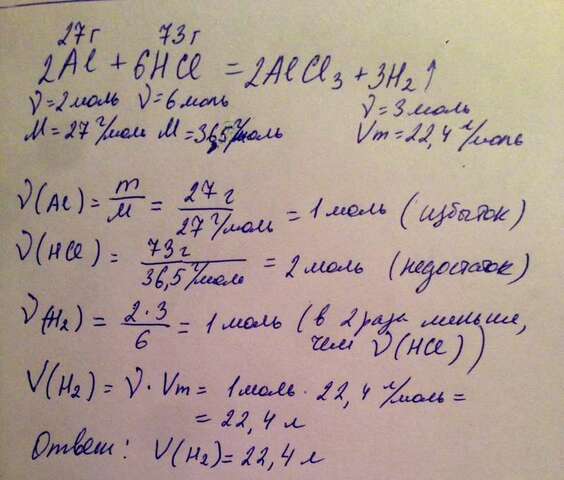 27 г 73 г
2Al + 6HCl = 2AlCl₃ + 3H₂↑
ν = 2 моль ν = 6 моль ν = 3 моль
M = 27 г/моль M = 36,5 г/моль Vm = 22,4 л/моль
ν(Al) = m/M = 27 г/27 г/моль = 1 моль (избыток)
ν(HCl) = 73 г/36,5 г/моль = 2 моль (недостаток)
ν(H₂) = 2·3/6 = 1 моль (в 2 раза меньше,
чем ν(HCl))
V(H₂) = ν · Vm = 1 моль · 22,4 л/моль =
= 22,4 л
Ответ: V(H₂) = 22,4 л